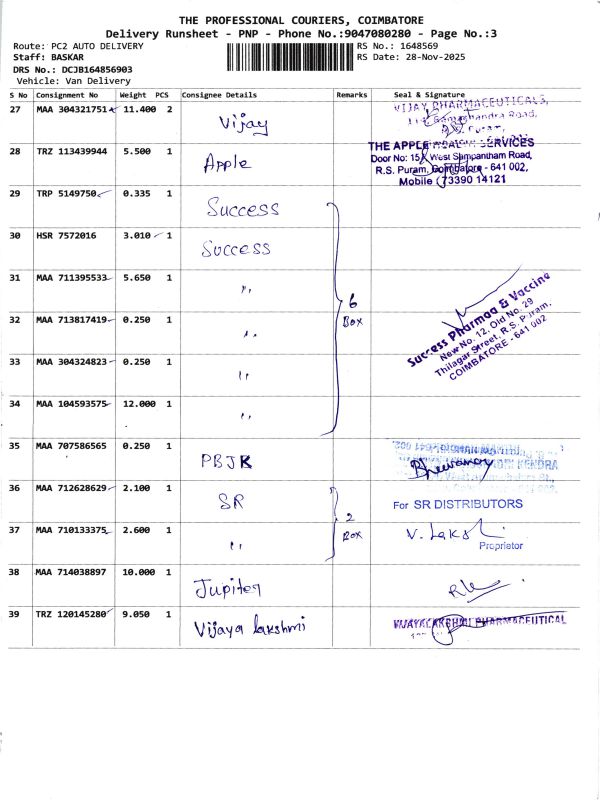 THE PROFESSIONAL COURIERS, COIMBATORE
Delivery Runsheet - PNP - Phone No.:9047080280 - Page No.:3
Route: PC2 AUTO DELIVERY RS No.: 1648569
Staff: BASKAR RS Date: 28-Nov-2025
DRS No.: DCJB164856903
Vehicle: Van Delivery
S No Consignment No Weight PCS Consignee Details Remarks Seal & Signature
27 MAA 304321751 11.400 2 Vijay VIJAY PHARMACEUTICALS,
Ramachandra Road,
Puram,
28 TRZ 113439944 5.500 1 Apple THE APPLE SERVICES
Door No: 15 West Slmpantham Road,
R.S. Puram, Coimbatore - 641 002,
Mobile 73390 14121
29 TRP 5149750 0.335 1 Success
30 HSR 7572016 3.010 1 Success
31 MAA 711395533 5.650 1 "
6
Box
Success Pharmaa & Vaccine
New No. 12, Old No. 29
Thilagar Street, R.S. Puram,
COIMBATORE - 641 002
32 MAA 713817419 0.250 1 "
33 MAA 304324823 0.250 1 "
34 MAA 104593575 12.000 1 "
35 MAA 707586565 0.250 1 PBJK KENDRA
36 MAA 712628629 2.100 1 SR For SR DISTRIBUTORS
2
Box
37 MAA 710133375 2.600 1 " V. Laksh
Proprietor
38 MAA 714038897 10.000 1 Jupiter
39 TRZ 120145280 9.050 1 Vijaya lakshmi VIJAYALAKSHMI PHARMACEUTICAL